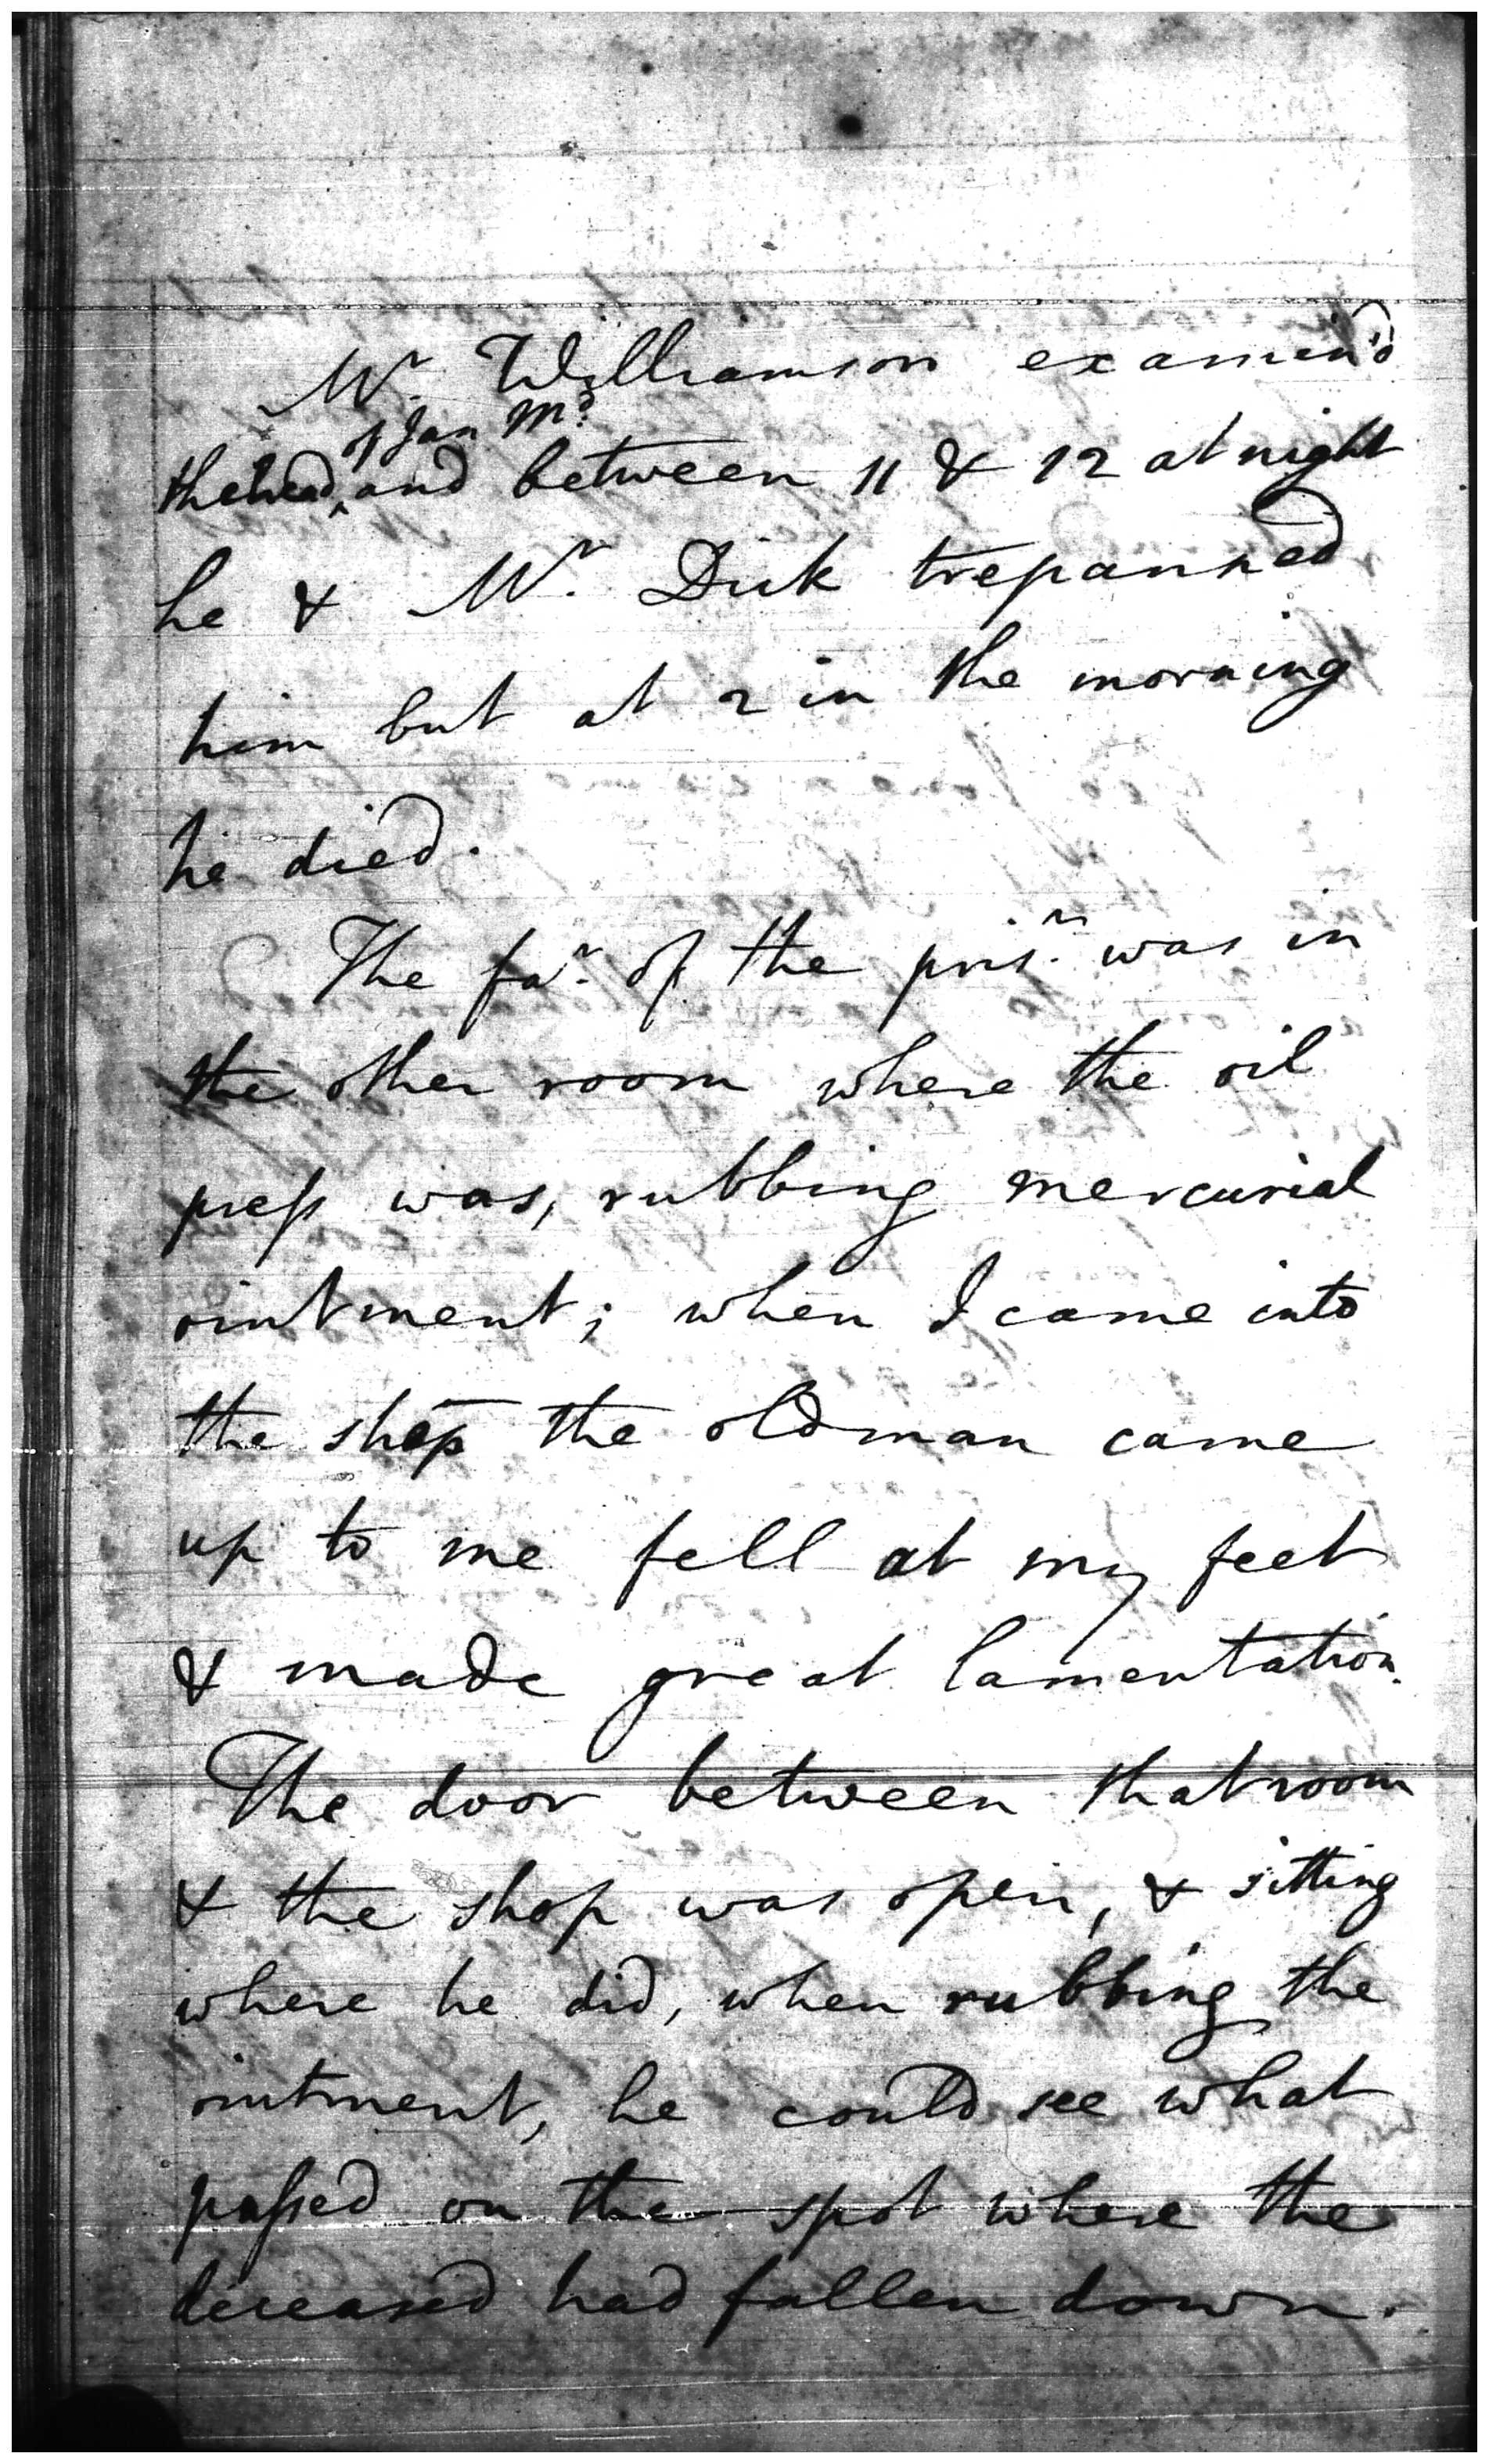 Mr. Williamson examin'd
of Jan Md.
the head, and between 11 & 12 at night
he & Mr. Dick trepanned
him but at 2 in the morning
he died.
The far. of the prisr. was in
the other room where the oil
press was, rubbing mercurial
ointment; when I came into
the shop the old man came
up to me fell at my feet
& made great lamentation.
The door between that room
& the shop was open, & sitting
where he did, when rubbing the
ointment, he could see what
passed on the spot where the
deceased had fallen down.